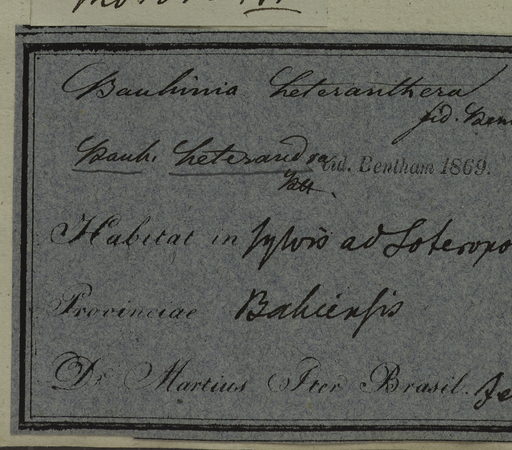 Bauhinia heteranthera
fid. Ben
Bauh. heterandra Vid. Bentham 1869.
Habitat in sylvis ad Soteropo
Provinciae Bahiensis
Dr. Martius Iter Brasil. Fe